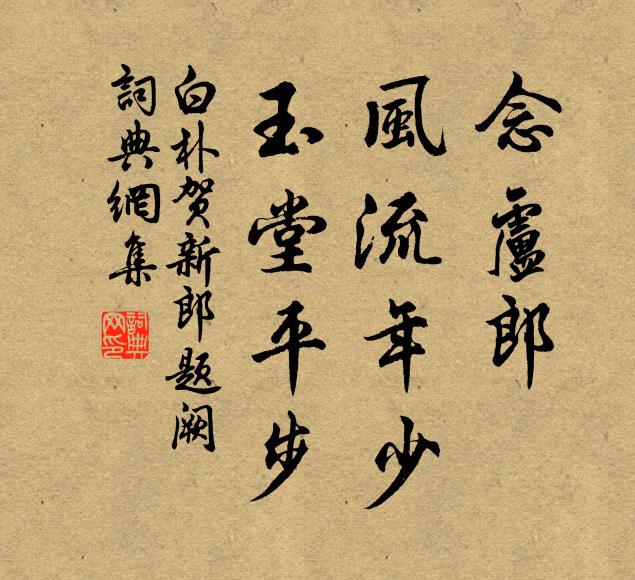 念盧郎
風流年少
玉堂平步
白朴贺新郎题阙
詞典網集
詞典网印